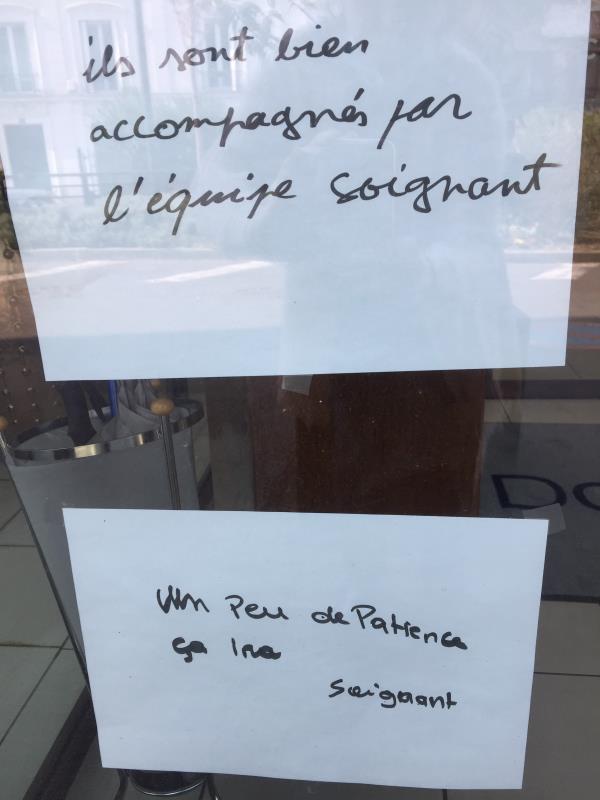 ils sont bien
accompagnés par
l'équipe soignant
DO
Un Peu de Patience
ça ira
Soignant